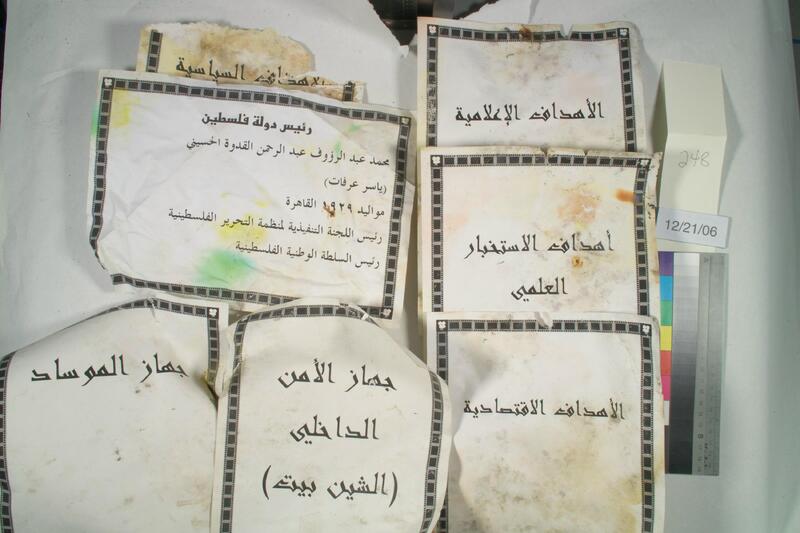 الأهداف السياسية
رئيس دولة فلسطين
محمد عبد الرؤوف عبد الرحمن القدوة الحسيني
(ياسر عرفات)
مواليد ١٩٢٩ القاهرة
رئيس اللجنة التنفيذية لمنظمة التحرير الفلسطينية
رئيس السلطة الوطنية الفلسطينية
الأهداف الإعلامية
أهداف الاستخبار
العلمي
الأهداف الاقتصادية
جهاز الأمن
الداخلي
(الشين بيت)
جهاز الموساد
248
12/21/06